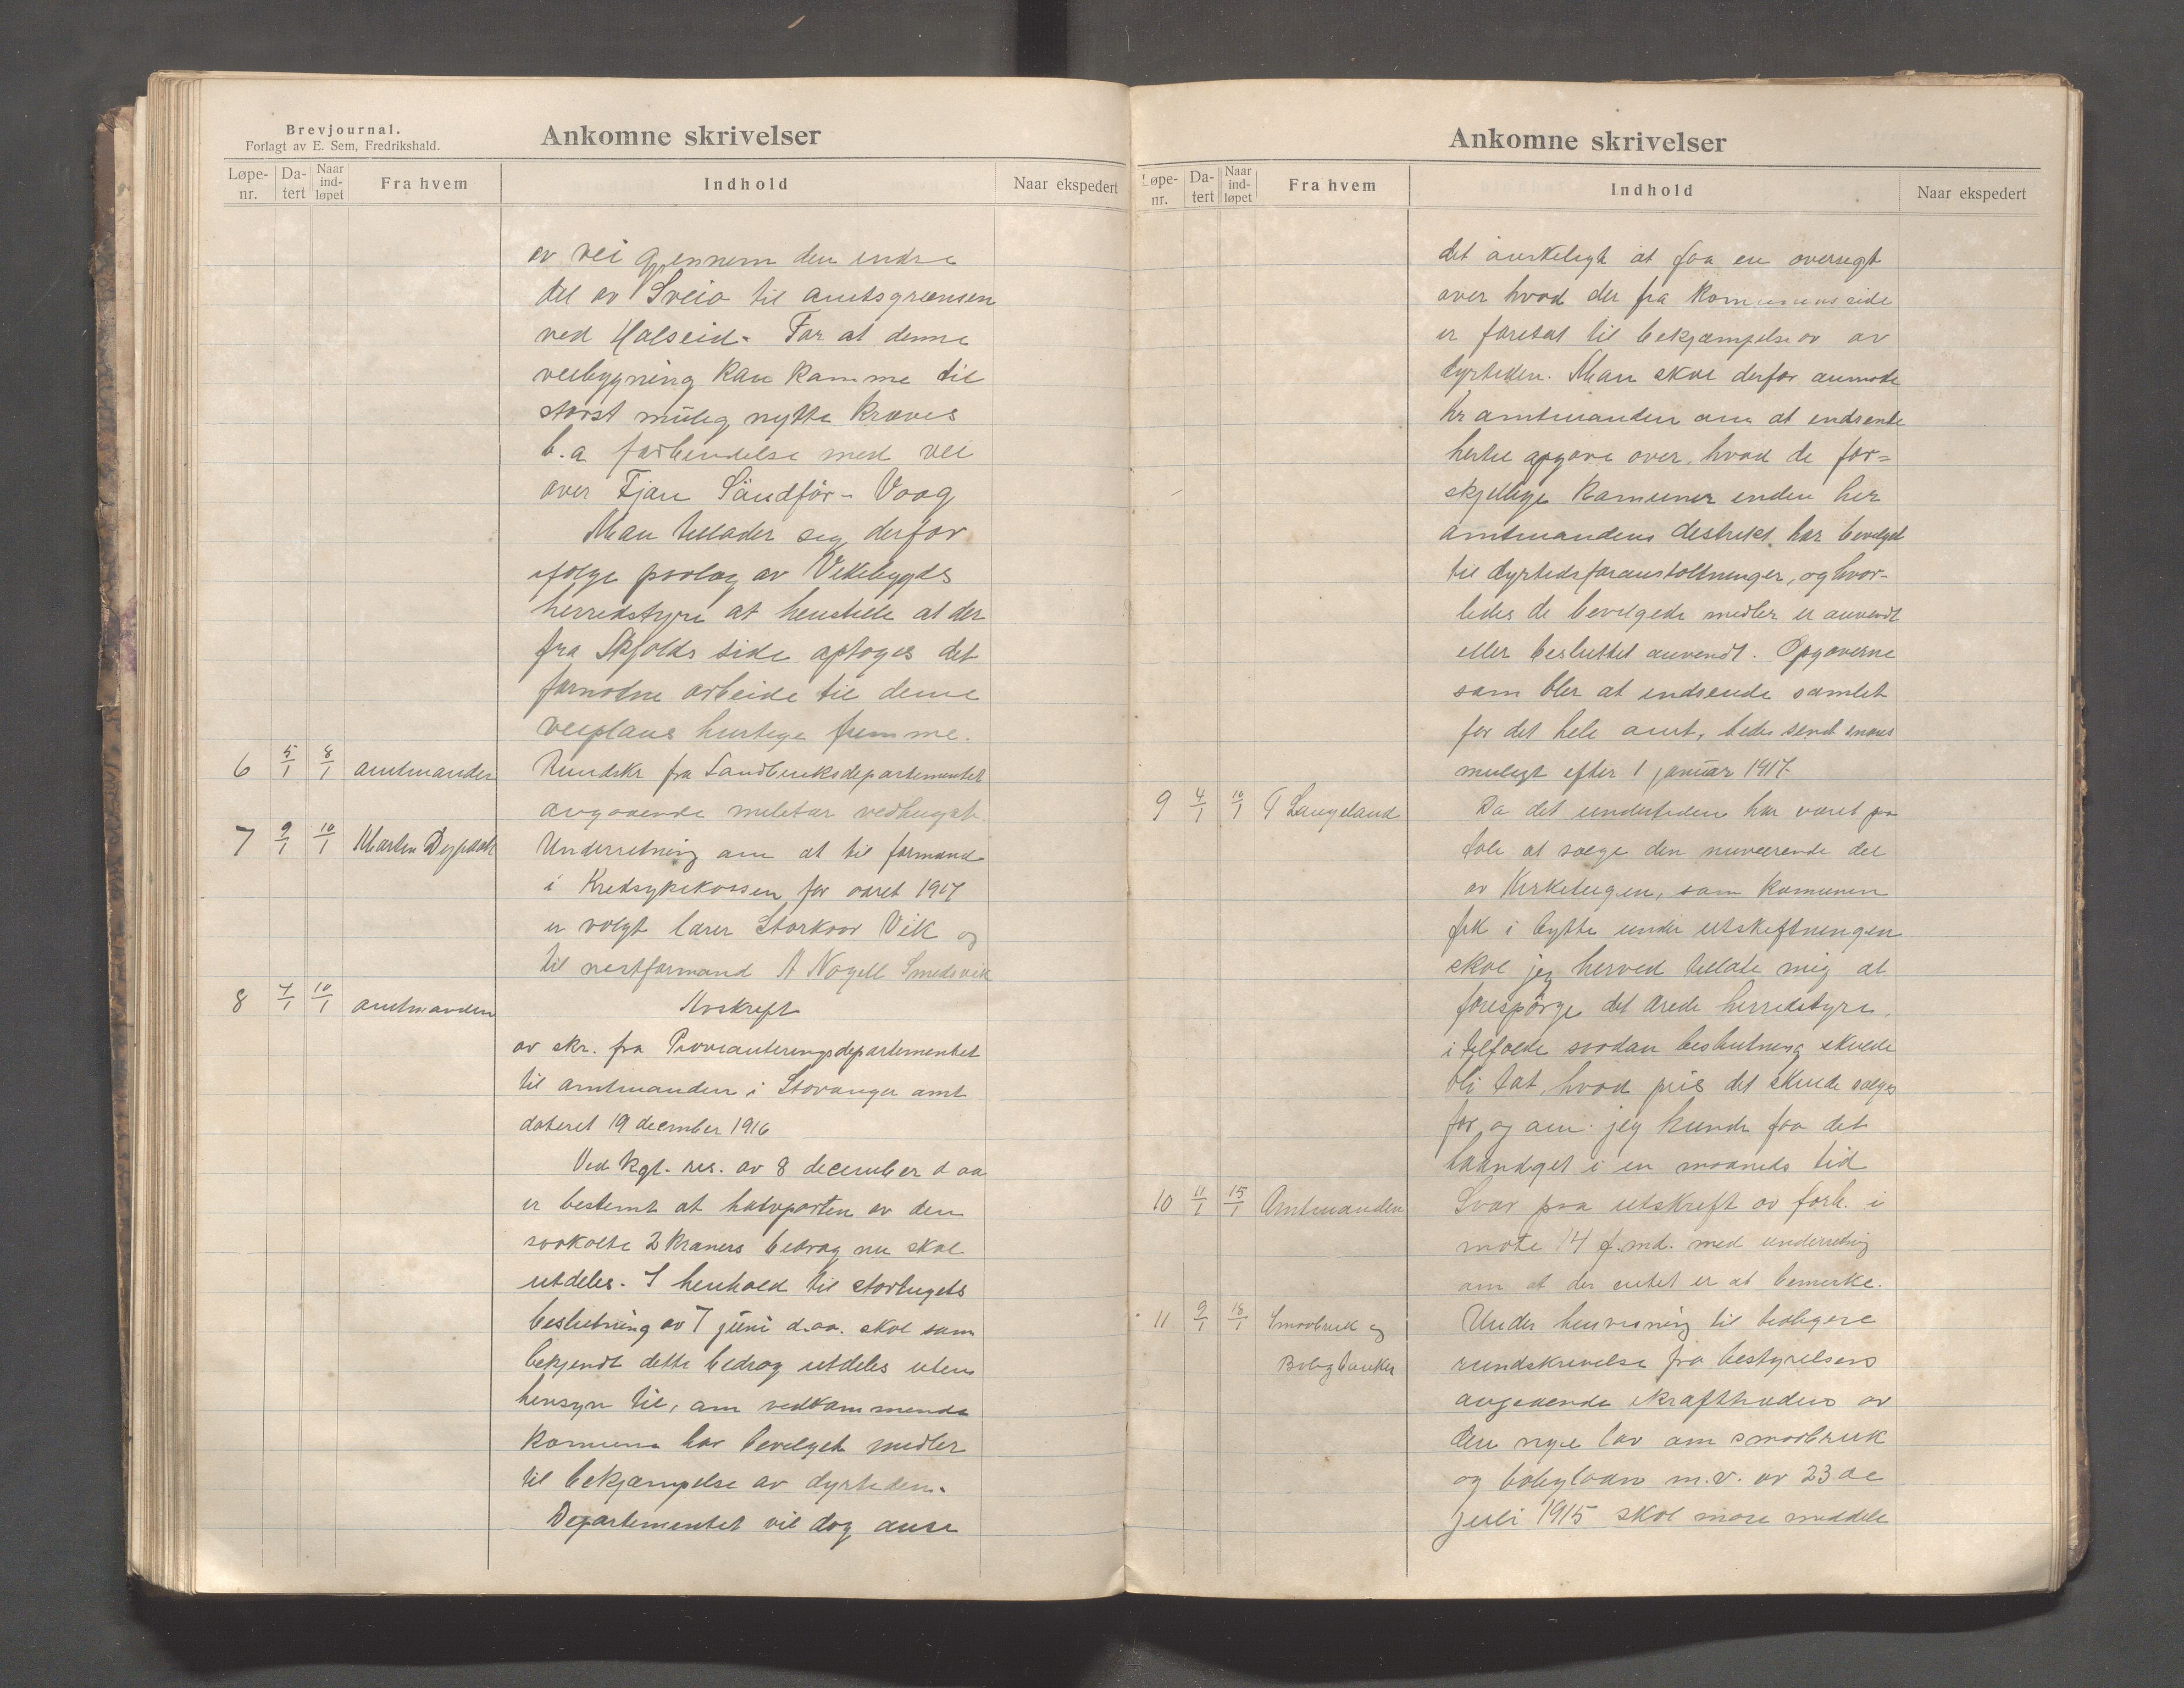 Brevjournal.
Forlagt av E. Sem, Fredrikshald.
Ankomne skrivelser
Løpe-nr. Da-tert Naar ind-løpet Fra hvem Indhold Naar ekspedert
av vei gjennem den indre
del av Sveio til amtsgrænsen
ved Halseid. For at denne
veibygning kan komme til
størst mulig nytte kræves
b.a forbindelse med vei
over Tjøn Sandfør - Vaag
Man tillader sig derfor
ifølge paalæg av Vikebygds
herredstyre at henstille at der
fra Skjolds side optoges det
fornødne arbeide til denne
veiplans hurtige fremme.
6 5/1 8/1 amtmanden Rundskr fra Landbruksdepartementet
angaaende militær vedhugst.
7 9/1 10/1 Martin Dypdahl Underretning om at til formand
i Kredsykekassen for aaret 1917
er valgt lærer Storkaar Vik og
til nestformand A Nogell Smedsvik
8 4/1 10/1 amtmanden Avskrift
av skr. fra Provianteringsdepartementet
til amtmanden i Stavanger amt
dateret 19 december 1916
Ved kgl. res. av 8 december d aa
er bestemt at halvparten av den
saakalte 2 kroners bidrag nu skal
utdeles. I henhold til stortingets
beslutning av 7 juni d.aa. skal som
bekjendt dette bidrag utdeles uten
hensyn til, om vedkommende
komune har bevilget midler
til bekjæmpelse av dyrtiden.
Departementet vil dog anse
Ankomne skrivelser
Løpe-nr. Da-tert Naar ind-løpet Fra hvem Indhold Naar ekspedert
det ønskeligt at faa en oversigt
over hvad der fra komunens side
er foretat til bekjæmpelse av av
dyrtiden. Man skal derfor anmode
hr amtmanden om at indsende
hertil opgave over, hvad de for=
skjellige komuner inden her
amtmandens distrikt har bevilget
til dyrtidsforanstaltninger, og hvor-
ledes de bevilgede midler er anvendt
eller besluttet anvendt. Opgaverne
som bler at indsende samlet
for det hele amt, bedes sendt snarest
muligt efter 1 januar 1917.
9 4/1 10/1 T Langeland Da det undertiden har været paa
tale at sælge den nuværende del
av Kirketeigen, som komunen
fik i bytte under utskiftningen
skal jeg herved tillate mig at
forespørge det ærede herredstyre,
i tilfælde saadan beslutning skulde
bli tat, hvad pris det skulde sælges
for og om jeg kunde faa det
haandgit i en maaneds tid
10 11/1 15/1 Amtmanden Svar paa utskrift av forh. i
møte 14 f. md. med underretnig
om at der intet er at bemerke.
11 9/1 18/1 Smaabruk og Under henvisning til tidligere
Boligbanken rundskrivelse fra bestyrelsens
angaaende ikrafttræden av
den nye lov om smaabruk
og boliglaan m.v. av 23 de
juli 1915 skal man meddele